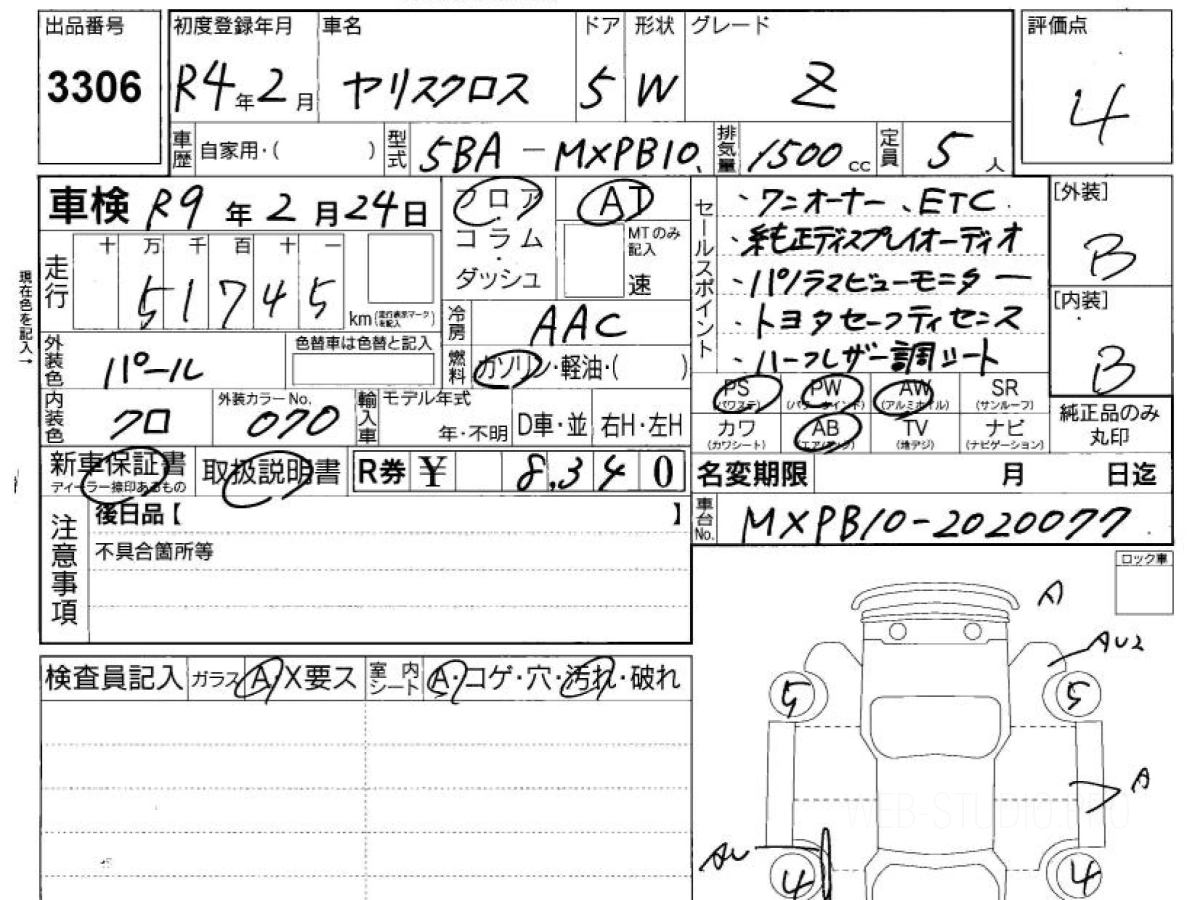 出品番号 初度登録年月 車名 ドア 形状 グレード 評価点
3306 R4年2月 ヤリスクロス 5 W Z 4
車歴 自家用・( ) 型式 5BA-MXPB10 排気量 1500cc 定員 5人
車検 R9年2月24日 フロア AT ・ワンオーナー、ETC [外装]
十 万 千 百 十 一 コラム MTのみ記入 ・純正ディスプレイオーディオ B
走行 51745 km (走行表示マークを記入) ・ダッシュ 速 セールスポイント ・パノラマビューモニター [内装]
現在色を記入→
冷房 AAC ・トヨタセーフティセンス
外装色 パール 色替車は色替と記入 燃料 ガソリン・軽油・( ) ・ハーフレザー調シート B
PS (パワステ) PW (パワーウインド) AW (アルミホイル) SR (サンルーフ)
内装色 クロ 外装カラーNo. 070 輸入車 モデル年式 年・不明 D車・並 右H・左H
カワ (カワシート) AB (エアバッグ) TV (地デジ) ナビ (ナビゲーション) 純正品のみ丸印
新車保証書 ディーラー捺印あるもの 取扱説明書 R券 ¥ 8,340 名変期限 月 日迄
注意事項 後日品【 】 車台No. MXPB10-2020077
不具合箇所等 ロック車
A
AU2
検査員記入 ガラス A・X要ス 室内シート A・コゲ・穴・汚れ・破れ
5 5
A
WEB-STUDIO.PRO
AU
4 4